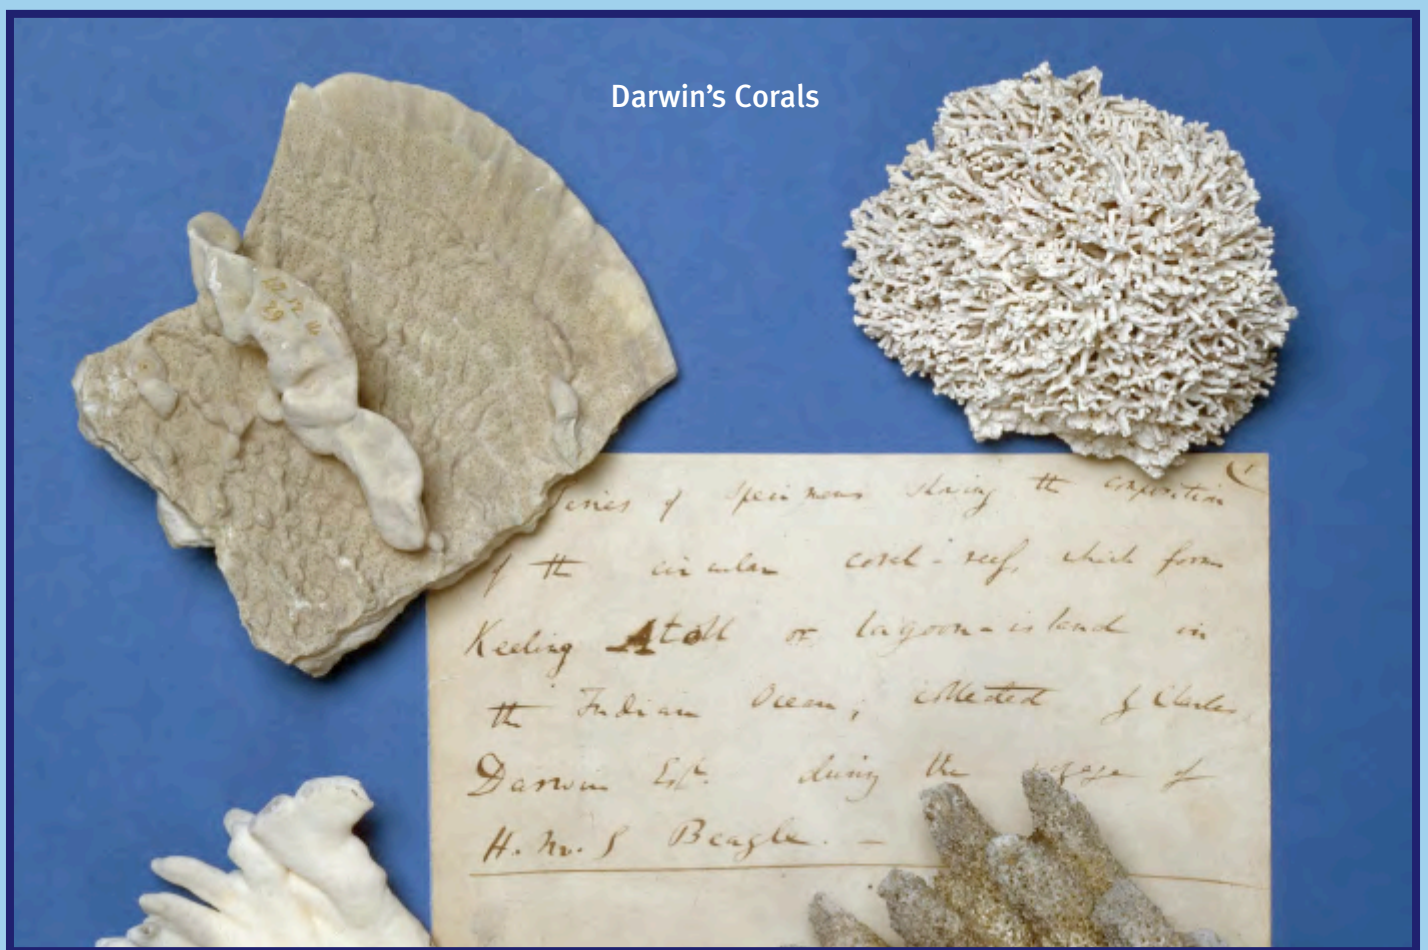 Darwin's Corals
Series of specimens showing the composition
of the circular coral-reef, which forms
Keeling Atoll or lagoon-island in
the Indian Ocean; collected by Charles
Darwin Esqr. during the voyage of
H.M.S Beagle. —